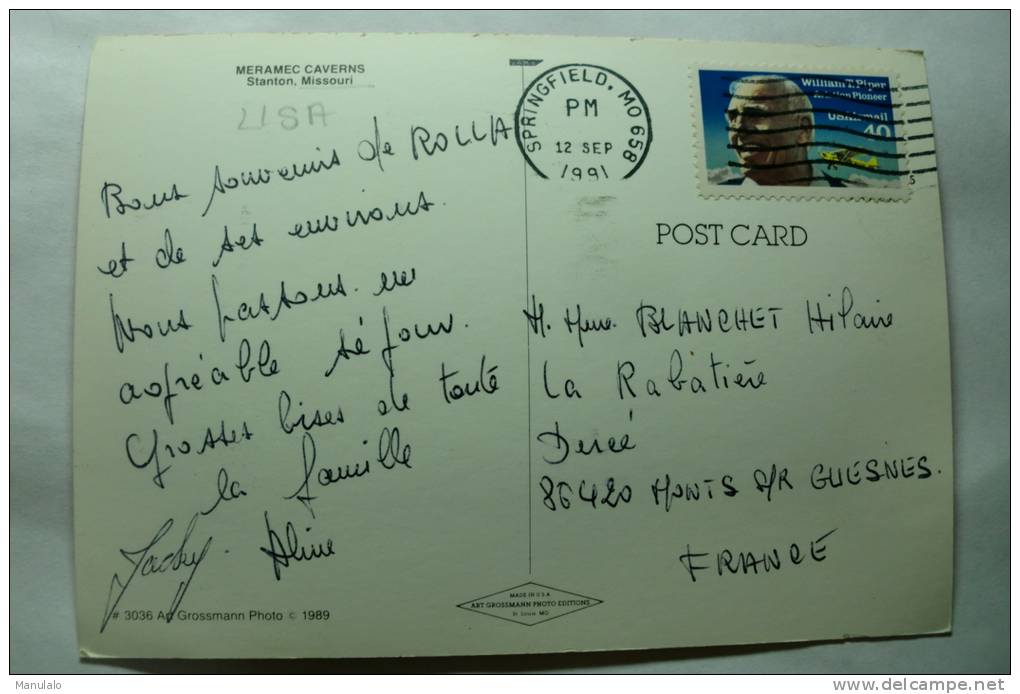 MERAMEC CAVERNS
Stanton, Missouri
USA
Bons souvenirs de ROLLA
et de ses environs.
Nous passons un
agréable séjour.
Grosses bises de toute
la famille
Jacky. Aline
# 3036 Art Grossmann Photo © 1989
SPRINGFIELD, MO 658
PM
12 SEP
1991
William T. Piper
Aviation Pioneer
USAirmail
40
POST CARD
M. Mme. BLANCHET Hilaire
La Rabatière
Dercé
86420 MONTS S/R GUESNES.
FRANCE
MADE IN U.S.A.
ART GROSSMANN PHOTO EDITIONS
St. Louis, MO
Manulalo
www.delcampe.net